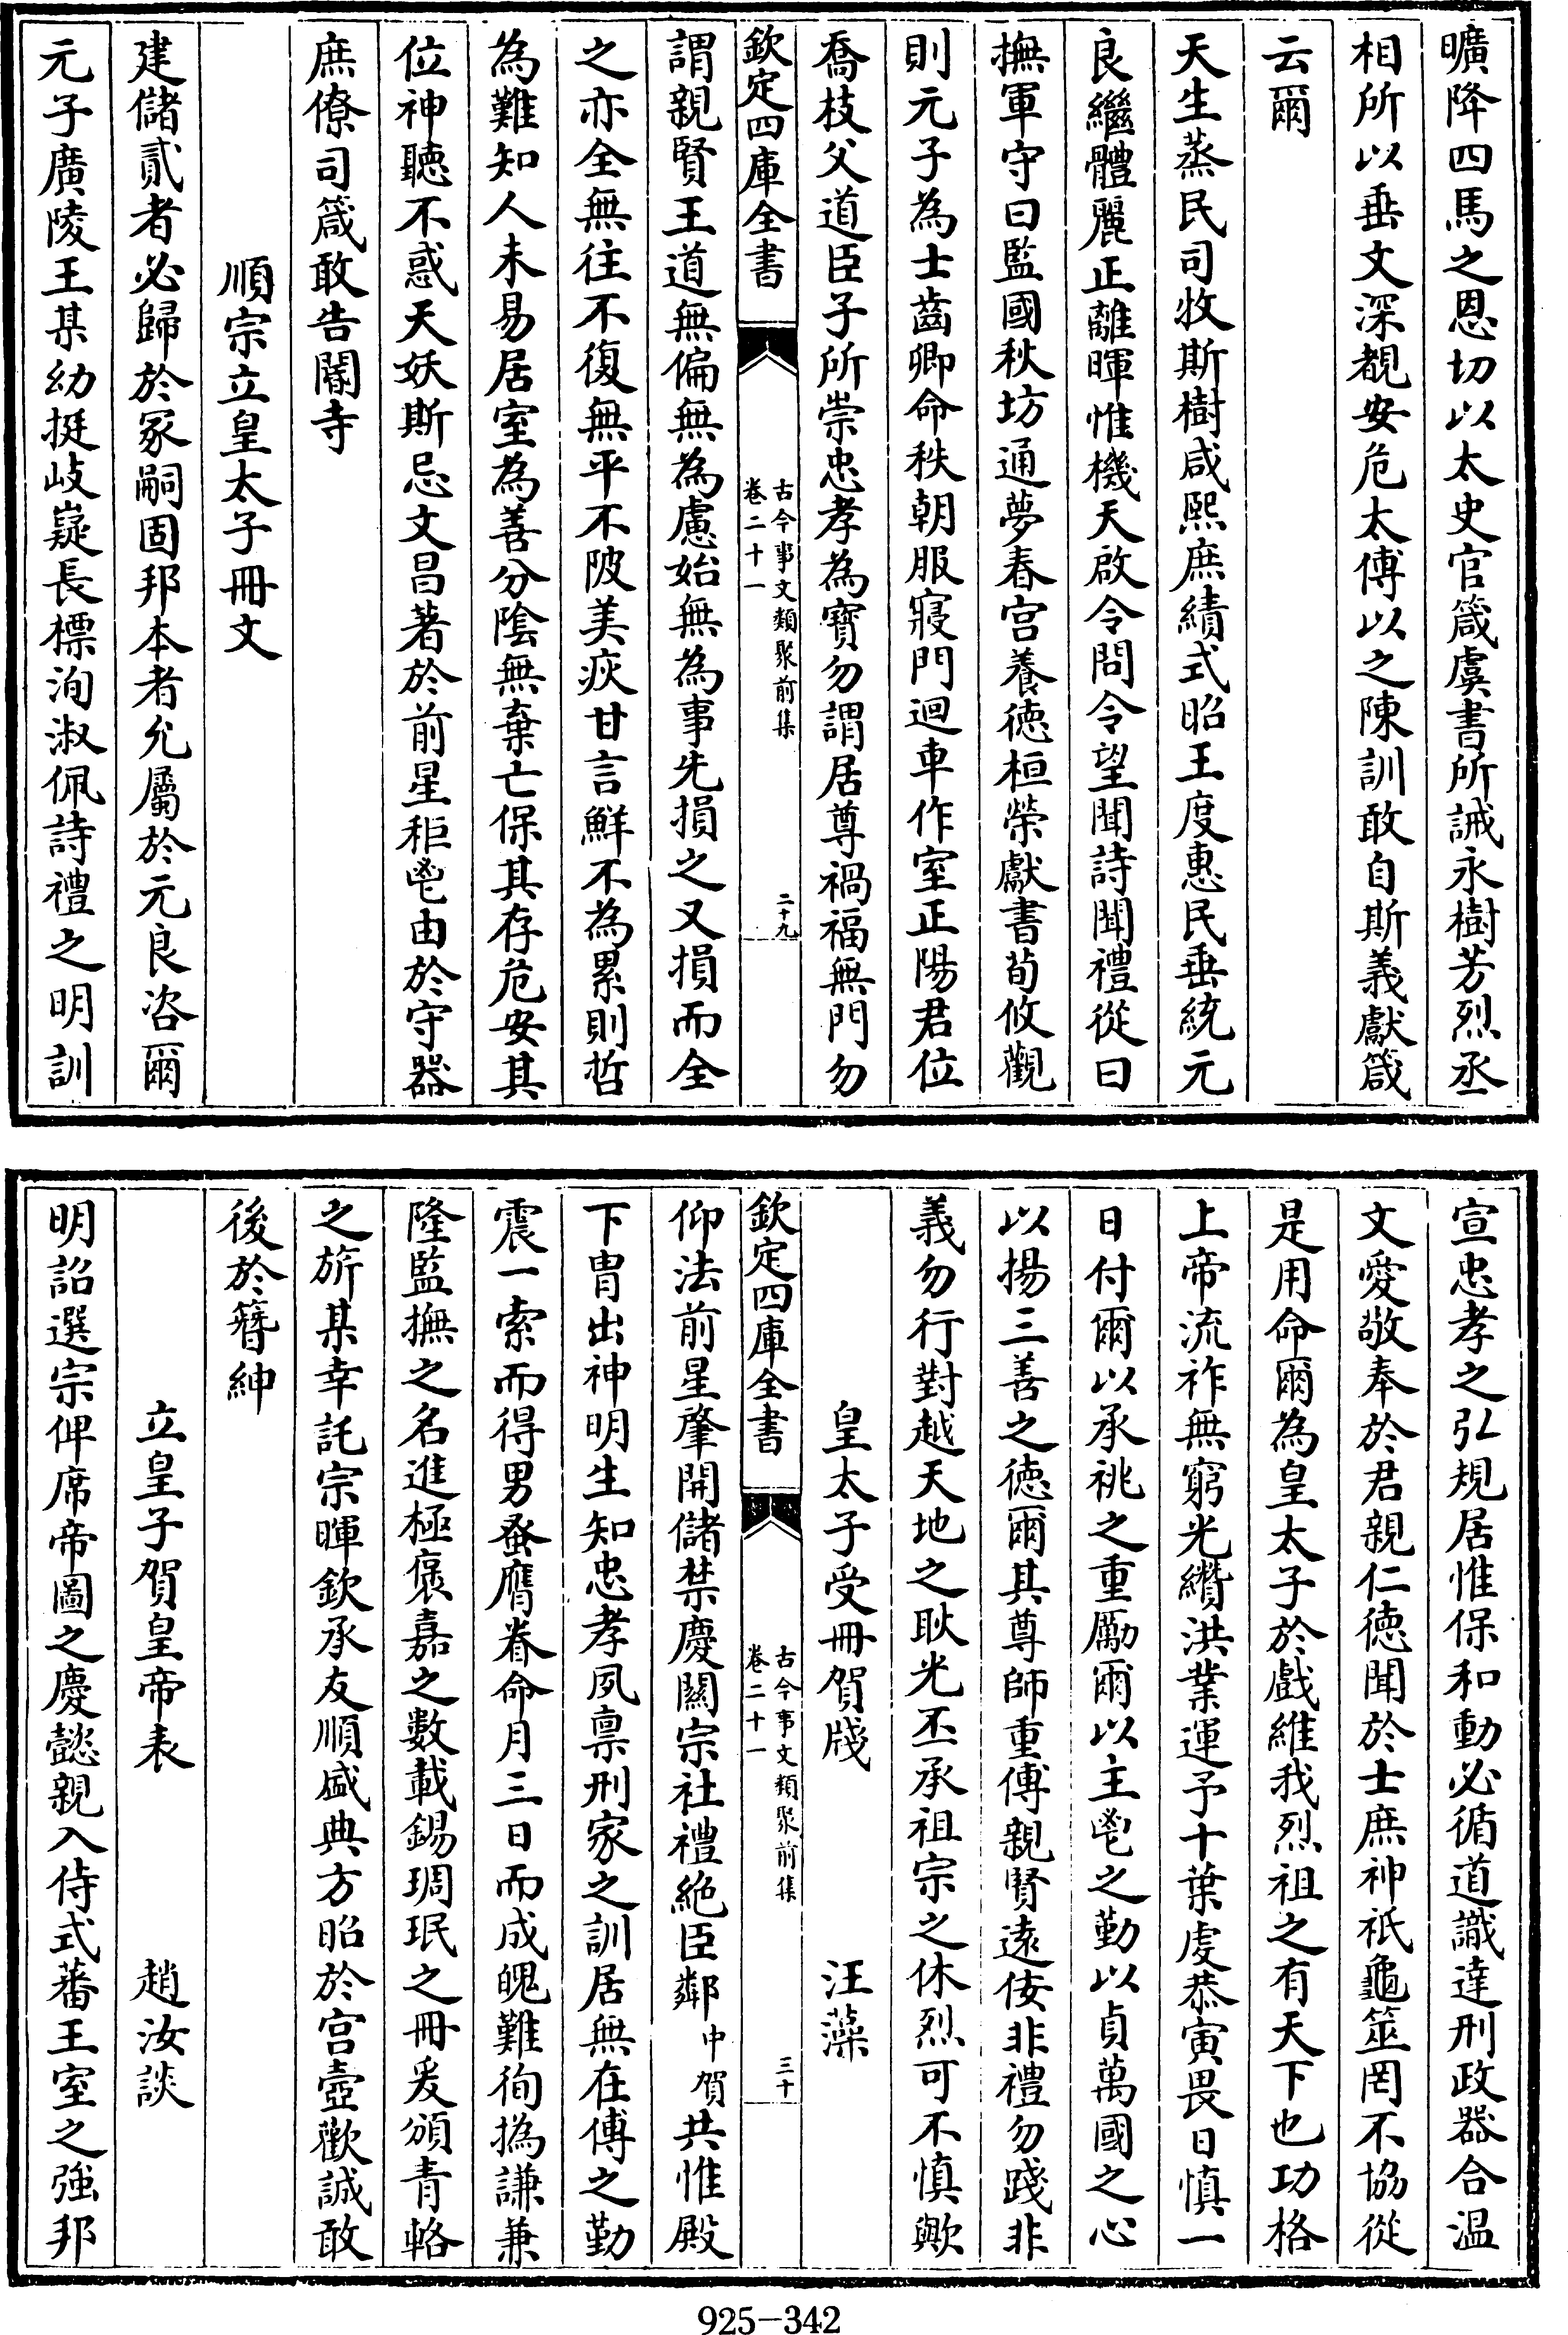 曠降四馬之恩切以太史官箴虞書所誡永樹芳烈丞
相所以垂文深覩安危太傅以之陳訓敢自斯義獻箴
云爾
天生蒸民司牧斯樹咸熙庶績式昭王度惠民垂統元
良繼體麗正離暉惟機天啟令問令望聞詩聞禮從曰
撫軍守曰監國秋坊通夢春宫養徳桓榮獻書荀攸觀
則元子為士齒卿命秩朝服寢門迴車作室正陽君位
喬枝父道臣子所崇忠孝為寳勿謂居尊禍福無門勿
欽定四庫全書
古今事文類聚前集
卷二十一
二十九
謂親賢王道無偏無為慮始無為事先損之又損而全
之亦全無往不復無平不陂美疢甘言鮮不為累則哲
為難知人未易居室為善分陰無棄亡保其存危安其
位神聽不惑天妖斯忌文昌著於前星秬鬯由於守器
庶僚司箴敢告閽寺
順宗立皇太子冊文
建儲貳者必歸於冢嗣固邦本者允屬於元良咨爾
元子廣陵王某幼挺岐嶷長標洵淑佩詩禮之明訓
宣忠孝之弘規居惟保和動必循道識達刑政器合温
文愛敬奉於君親仁徳聞於士庶神祇龜筮罔不協從
是用命爾為皇太子於戲維我烈祖之有天下也功格
上帝流祚無窮光纘洪業運予十葉虔恭寅畏日慎一
日付爾以承祧之重勵爾以主鬯之勤以貞萬國之心
以揚三善之徳爾其尊師重傅親賢遠佞非禮勿踐非
義勿行對越天地之耿光丕承祖宗之休烈可不慎歟
皇太子受冊賀牋 汪藻
欽定四庫全書
古今事文類聚前集
卷二十一
三十
仰法前星肇開儲禁慶關宗社禮絶臣鄰中賀共惟殿
下胄出神明生知忠孝夙禀刑家之訓居無在傅之勤
震一索而得男蚤膺眷命月三日而成魄難徇撝謙兼
隆監撫之名進極褒嘉之數載錫琱珉之冊爰頒青輅
之旂某幸託宗暉欽承友順盛典方昭於宫壼歡誠敢
後於簪紳
立皇子賀皇帝表 趙汝談
明詔選宗俾席帝圖之慶懿親入侍式蕃王室之強邦
925-342